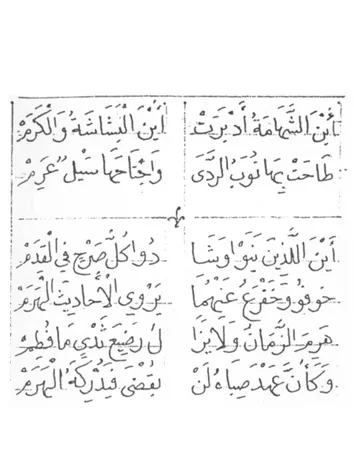 أَيْنَ الشَّهَامَةُ أَدْبَرَتْ أَيْنَ الْبَشَاشَةُ وَالْكَرَمْ
طَاحَتْ بِهَا نُوَبُ الرَّدَى وَاجْتَاحَهَا سَيْلٌ عَرِمْ
أَيْنَ اللَّذَيْنِ بَنَوْا وَشَا دُوا كُلَّ صَرْحٍ فِي الْقِدَمْ
خوفو وَخَفْرَعُ عَنْهُمَا يَرْوِي الْأَحَادِيثَ الْهَرَمْ
هَرِمَ الزَّمَانُ وَلَا يَزَا لُ رَضِيعَ ثَدْيٍ مَا فُطِمْ
وَكَأَنَّ عَهْدَ صِبَاهُ لَنْ يُقْضَى فَيُدْرِكَهُ الْهَرَمْ